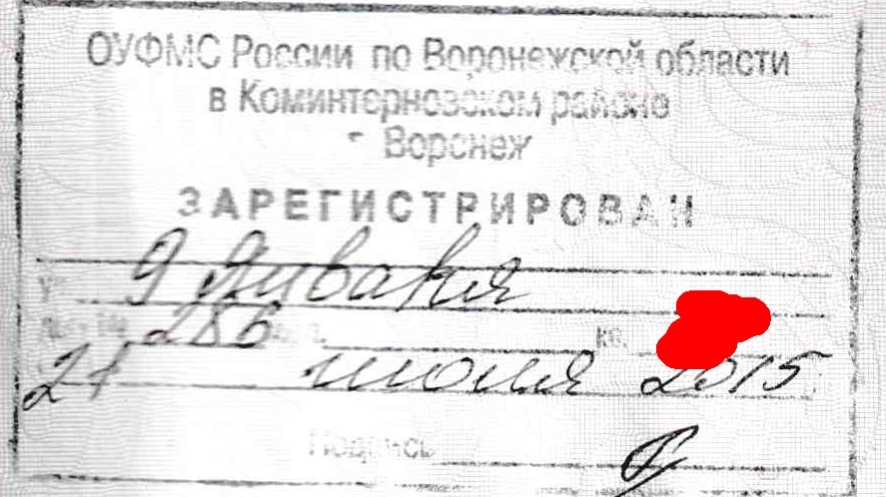 ОУФМС России по Воронежской области
в Коминтерновском районе
г Воронеж
ЗАРЕГИСТРИРОВАН
ул. 9 Января
286 кв.
21 июля 2015
Подпись